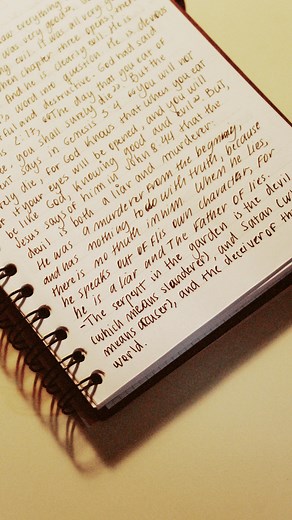 saw everything
was very good,
evil. It was all very good
when chapter three opens,
And he is clearly evil. He is
's word. He question. He is devious
ful and destructive. God had said
2:17, "for the day that you eat of
you shall surely die". But the
ent says in Genesis 3:4 "you will not
rely die! For God knows that when you eat
of it your eyes will be opened, and you will
be like God, knowing good and evil". But,
Jesus says of him in John 8:44 that the
devil is both a liar and murderer.
He was a murderer from the beginning,
and has nothing to do with truth, because
there is no truth in him. When he lies,
he speaks out of his own character, for
he is a liar and the father of lies.
-The serpent in the garden is the devil
(which means slanderer), and Satan (w
means accuser), and the deceiver of th
world.